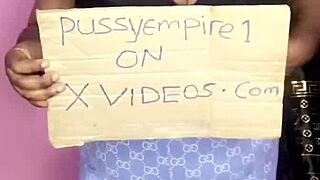 PUSSYEMPIRE1
ON
XVIDEOS.COM